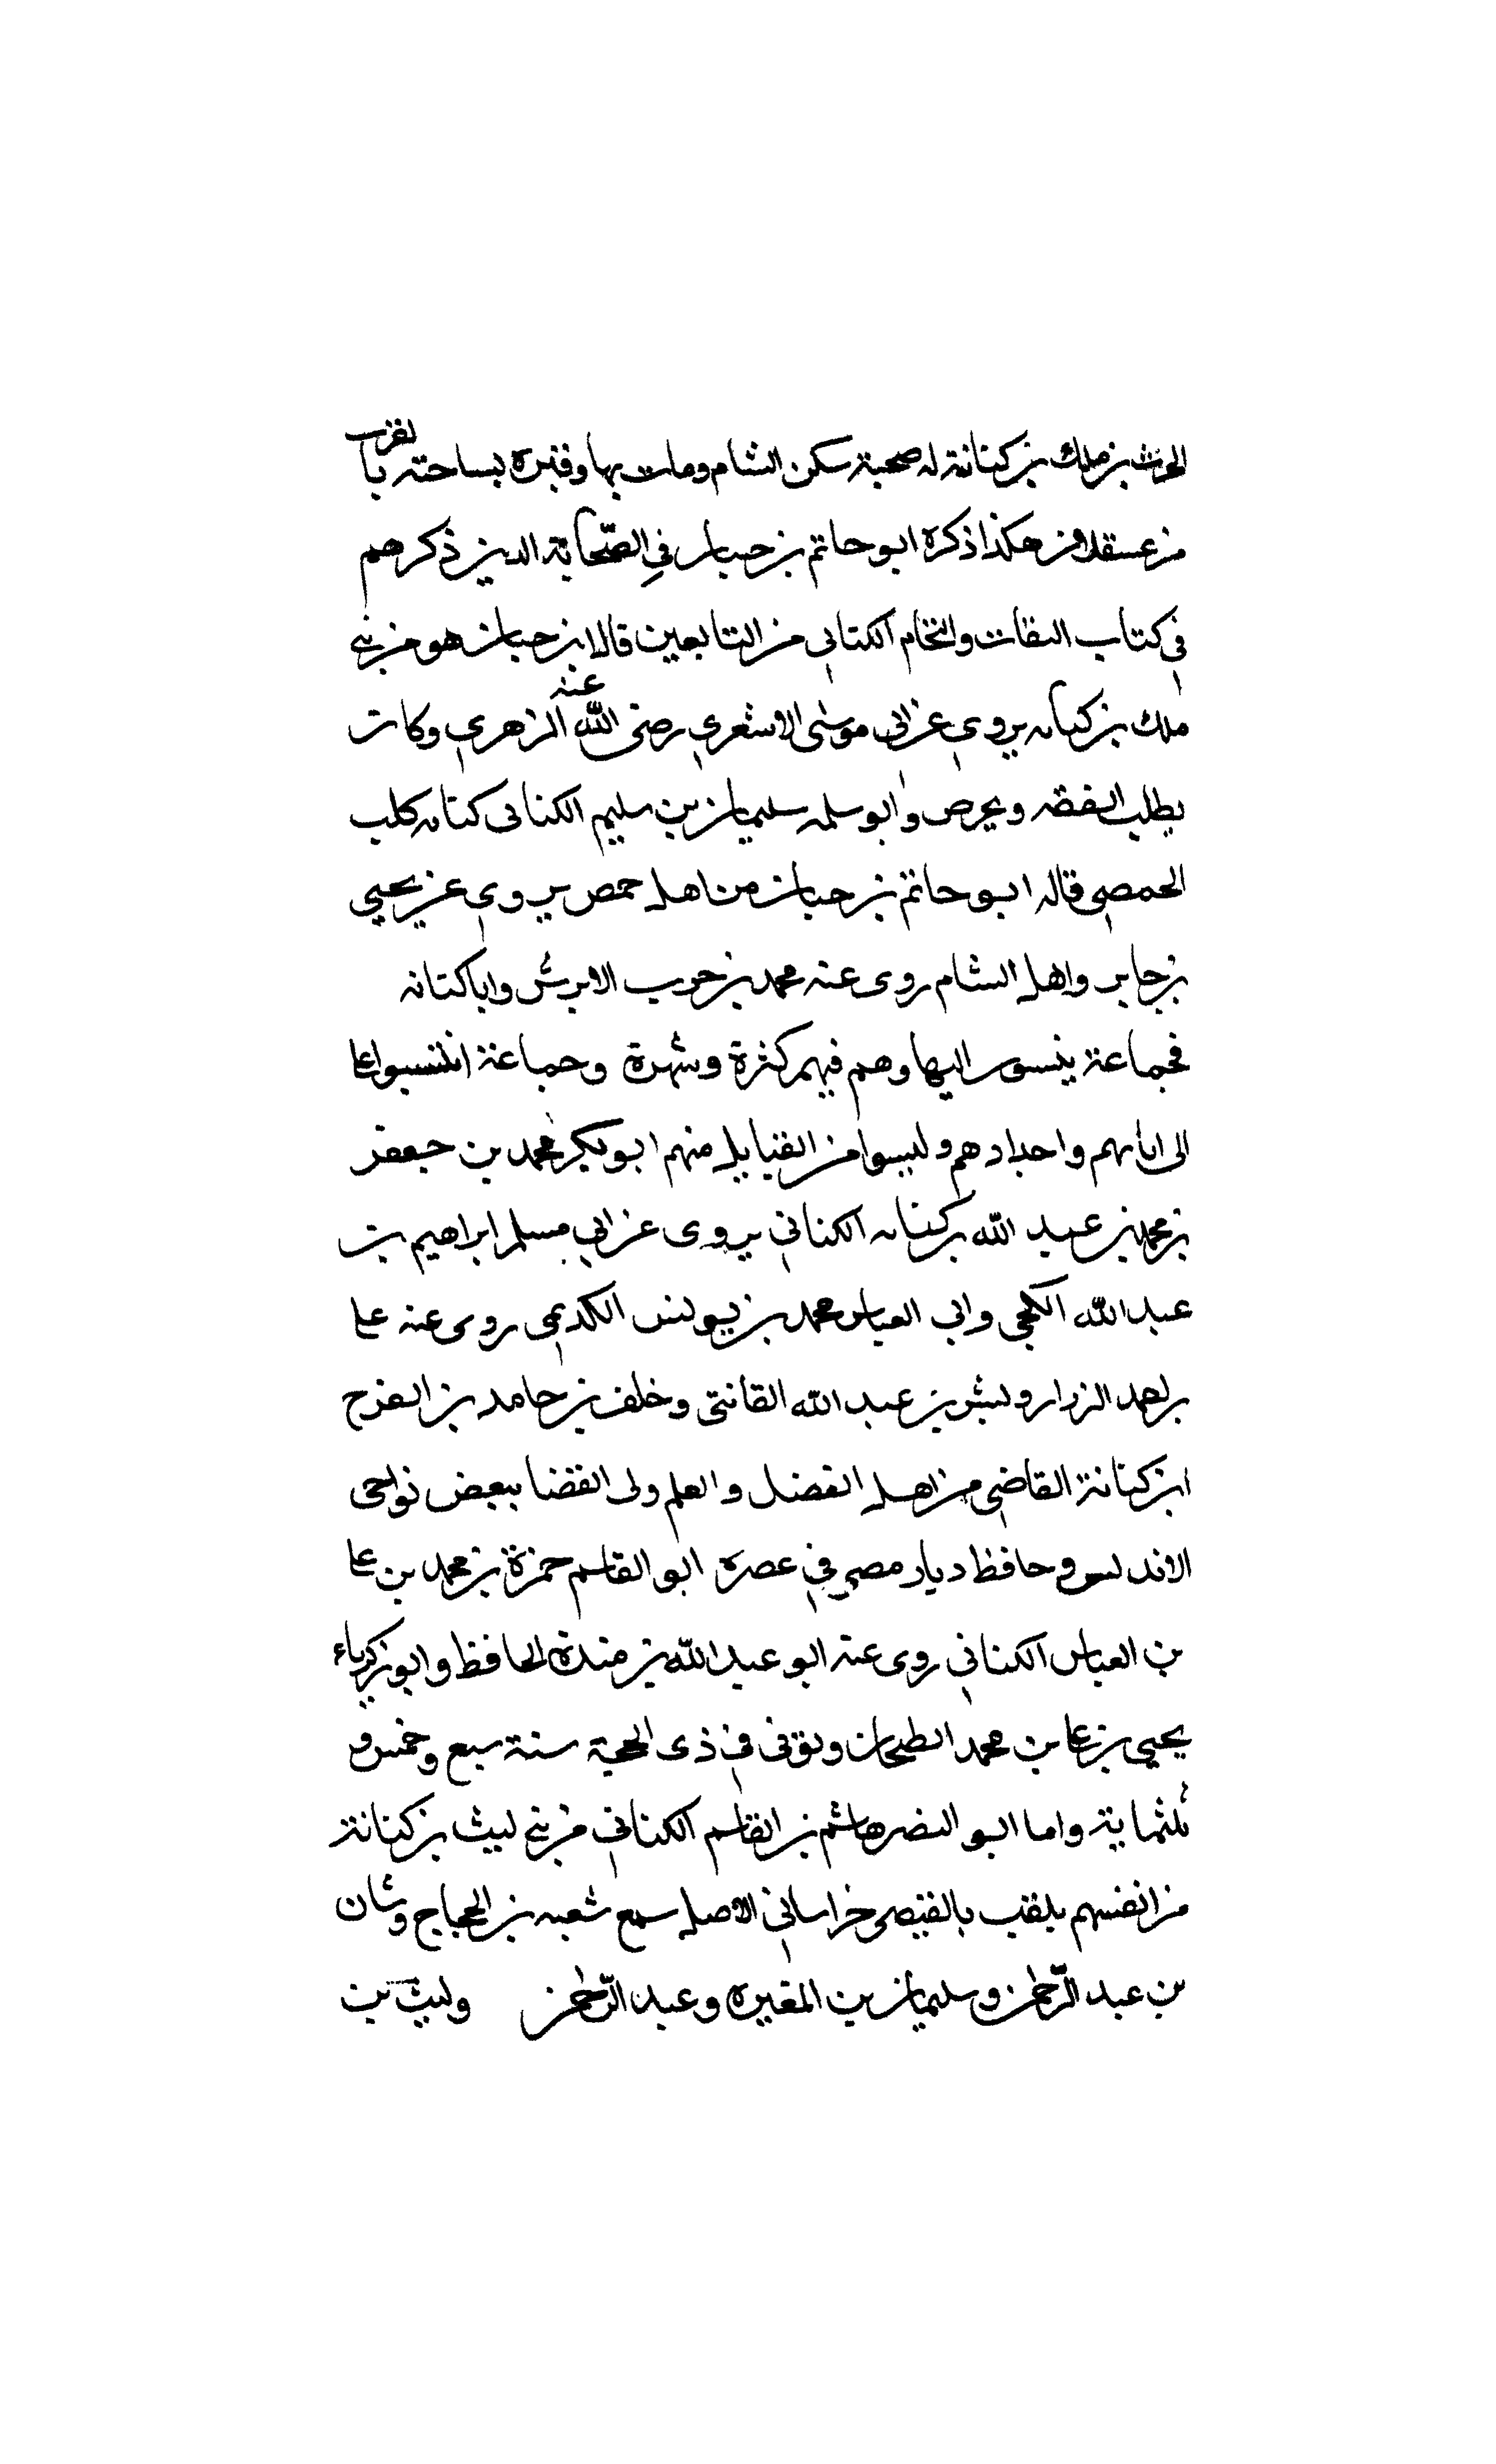 الحرث بن ملك بن كنانة له صحبة سكن الشام ومات بها وقبره بساحته بالقرب
من عسقلان هكذا ذكره ابو حاتم بن حبان في الصحابة الدين ذكرهم
في كتاب الثقات والنخام الكناني من التابعين قال ابن حبان هو من بني
ملك بن كنانه يروي عن ابي موسى الاشعري رضى الله عنه الزهري وكان
يطلب الفقه ويحرص وابو سلمه سليمان بن سليم الكناني كنانه كلب
الحمصي قال ابو حاتم بن حبان من اهل حمص يروي عن يحيي
بن جابر واهل الشام روى عنه محمد بن حرب الابرش واباكنانه
فجماعة ينسبون اليها وهم فيهم كثرة وشهرة وجماعة انتسبوا
الى ابايهم واجدادهم وليسوا من القبايل منهم ابو بكر محمد بن جعفر
بن محمد بن عبد الله بن كنانه الكناني يروى عن ابي مسلم ابراهيم بن
عبد الله الكجي وابي العباس محمد بن يونس الكديمي روى عنه على
بن احمد الرزاز وبشر بن عبد الله القانتى وخلف بن حامد بن الفرج
ابن كنانة القاضي من اهل الفضل والعلم ولى القضا ببعض نواحى
الاندلس وحافظ ديار مصر في عصره ابو القاسم حمزة بن محمد بن على
بن العباس الكناني روى عنه ابو عبد الله بن مندة الحافظ وابو زكرياء
يحيي بن على بن محمد الطحان وتوفى في ذى الحجة سنة سبع وخمس و
ثلثماية واما ابو النضر هاشم بن القاسم الكناني من بني ليث بن كنانة
من انفسهم يلقب بالقيصر خراساني الاصل سمع شعبه بن الحجاج وشان
بن عبد الرحمن وسليمان بن المغيره وعبد الرحمن وليث بن